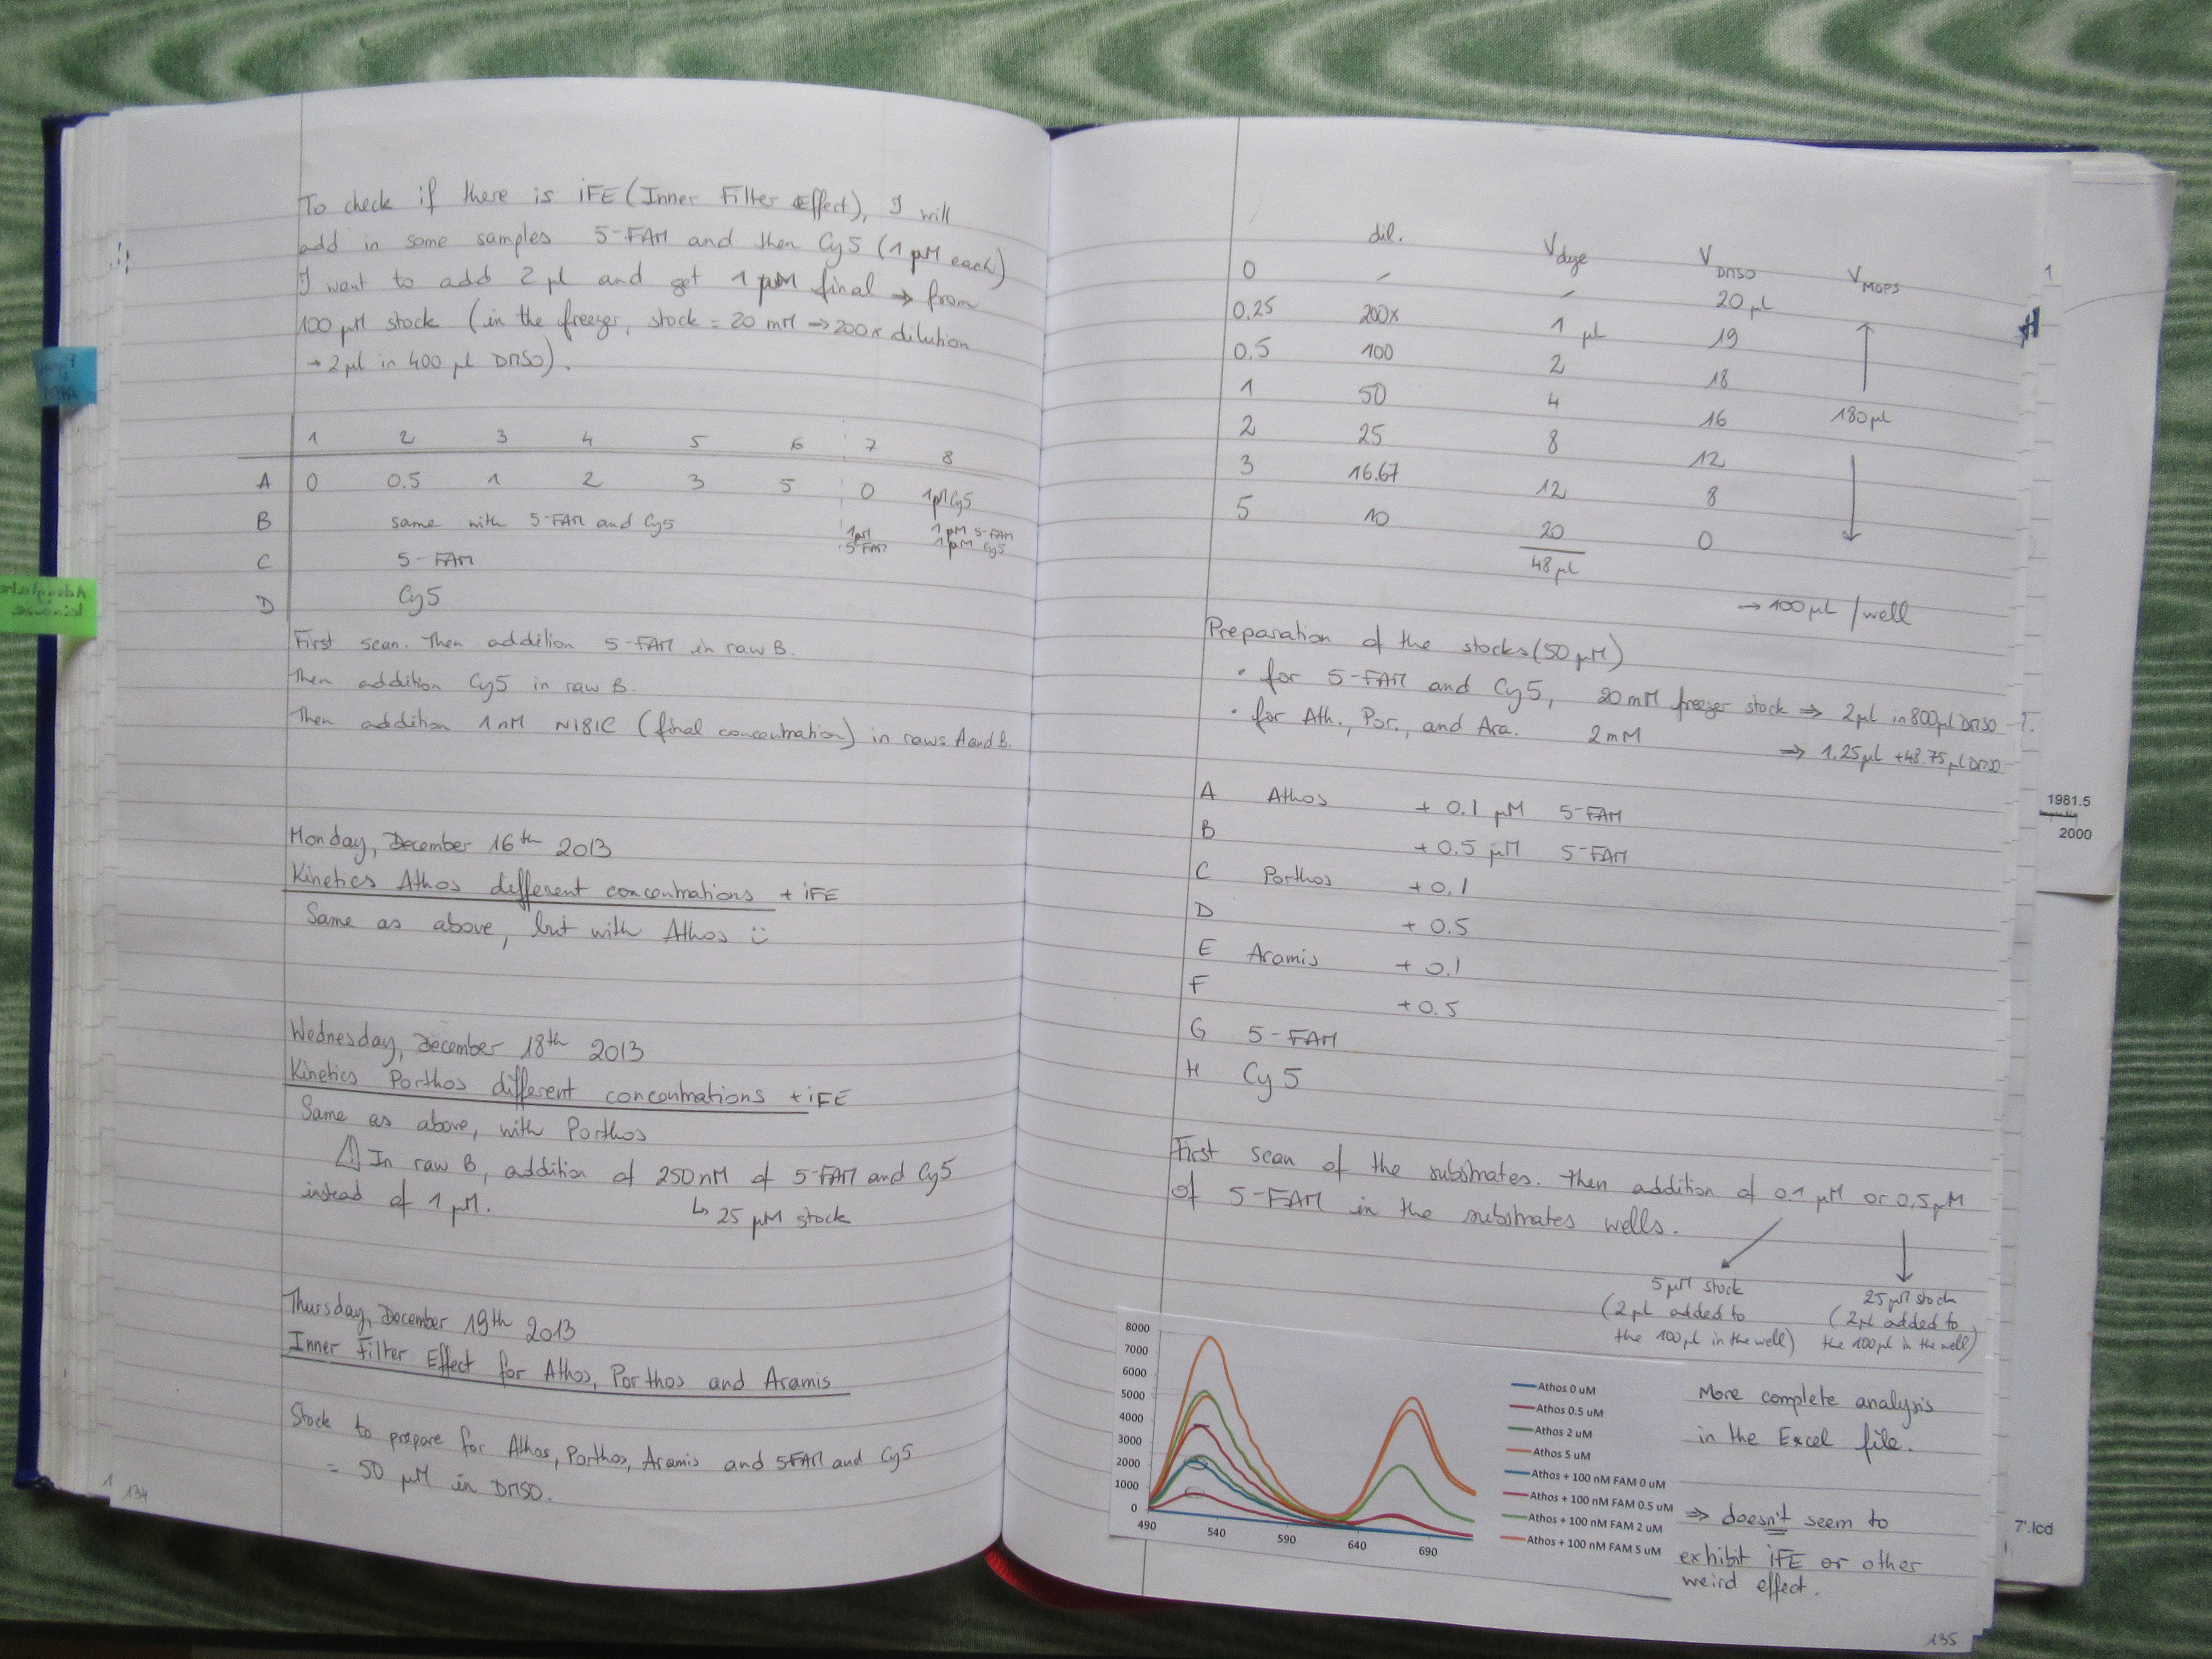 To check if there is iFE (Inner Filter Effect), I will
add in some samples 5-FAM and then Cy5 (1 µM each)
I want to add 2 µl and get 1 µM final → from
100 µM stock (in the freezer, stock = 20 mM → 200x dilution
→ 2 µl in 400 µl DMSO).
1 2 3 4 5 6 7 8
A 0 0.5 1 2 3 5 0 1µM Cy5
B same with 5-FAM and Cy5 1µM 5-FAM 1 µM 5-FAM 1 µM Cy5
C 5-FAM
D Cy5
First scan. Then addition 5-FAM in raw B.
Then addition Cy5 in raw B.
Then addition 1 nM N181C (final concentration) in raws A and B.
Monday, December 16th 2013
Kinetics Athos different concentrations + iFE
Same as above, but with Athos
Wednesday, December 18th 2013
Kinetics Porthos different concentrations + iFE
Same as above, with Porthos
In raw B, addition of 250 nM of 5-FAM and Cy5
instead of 1 µM. ↳ 25 µM stock
Thursday, December 19th 2013
Inner Filter Effect for Athos, Porthos and Aramis
Stock to prepare for Athos, Porthos, Aramis and 5FAM and Cy5
= 50 µM in DMSO.
134
dil. Vdye VDMSO VMOPS
0 - - 20 µl
0.25 200x 1 µl 19
0.5 100 2 18
1 50 4 16 180 µl
2 25 8 12
3 16.67 12 8
5 10 20 0
48 µl
→ 100 µL / well
Preparation of the stocks (50 µM)
• for 5-FAM and Cy5, 20 mM freezer stock ⇒ 2 µl in 800 µl DMSO
• for Ath., Por., and Ara. 2 mM ⇒ 1.25 µl + 48.75 µl DMSO
A Athos + 0.1 µM 5-FAM
B + 0.5 µM 5-FAM
C Porthos + 0.1
D + 0.5
E Aramis + 0.1
F + 0.5
G 5-FAM
H Cy5
First scan of the substrates. Then addition of 0.1 µM or 0.5 µM
of 5-FAM in the substrates wells.
5 µM stock
(2 µL added to
the 100 µl in the well)
25 µM stock
(2 µL added to
the 100 µl in the well)
8000
7000
6000
5000
4000
3000
2000
1000
0
490 540 590 640 690
Athos 0 uM
Athos 0.5 uM
Athos 2 uM
Athos 5 uM
Athos + 100 nM FAM 0 uM
Athos + 100 nM FAM 0.5 uM
Athos + 100 nM FAM 2 uM
Athos + 100 nM FAM 5 uM
More complete analysis
in the Excel file.
⇒ doesn't seem to
exhibit iFE or other
weird effect.
135
1981.5
2000
7'.lcd